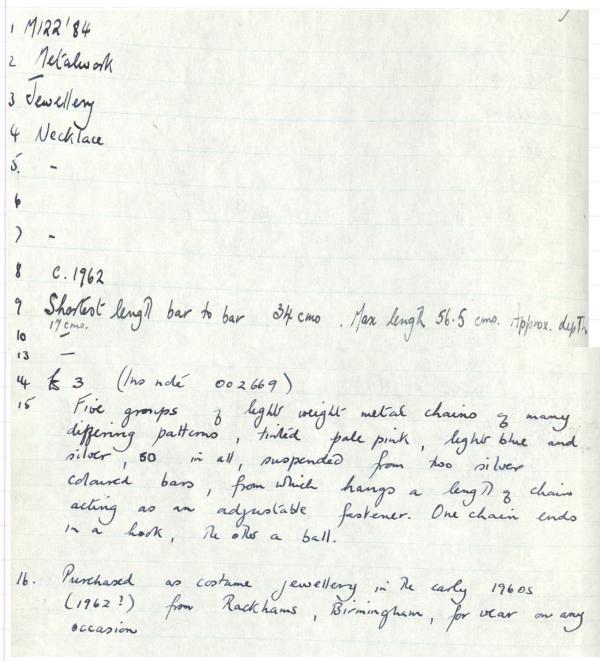 1 M122'84
2 Metalwork
3 Jewellery
4 Necklace
5. -
6
7 -
8 c. 1962
9 Shortest length bar to bar 34 cms. Max length 56.5 cms. Approx. depth
17 cms.
10 -
13 -
14 £ 3 (Ins note 002669)
15 Five groups of light weight metal chains of many
differing patterns, tinted pale pink, light blue and
silver, 50 in all, suspended from two silver
coloured bars, from which hangs a length of chain
acting as an adjustable fastener. One chain ends
in a hook, the other a ball.
16. Purchased as costume jewellery in the early 1960s
(1962?) from Rackhams, Birmingham, for wear on any
occasion